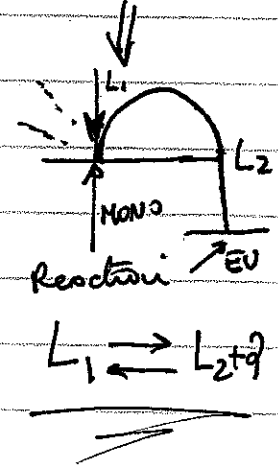 L₁
L₂
MONO
EU
Reaction
L₁ ⇌ L₂+